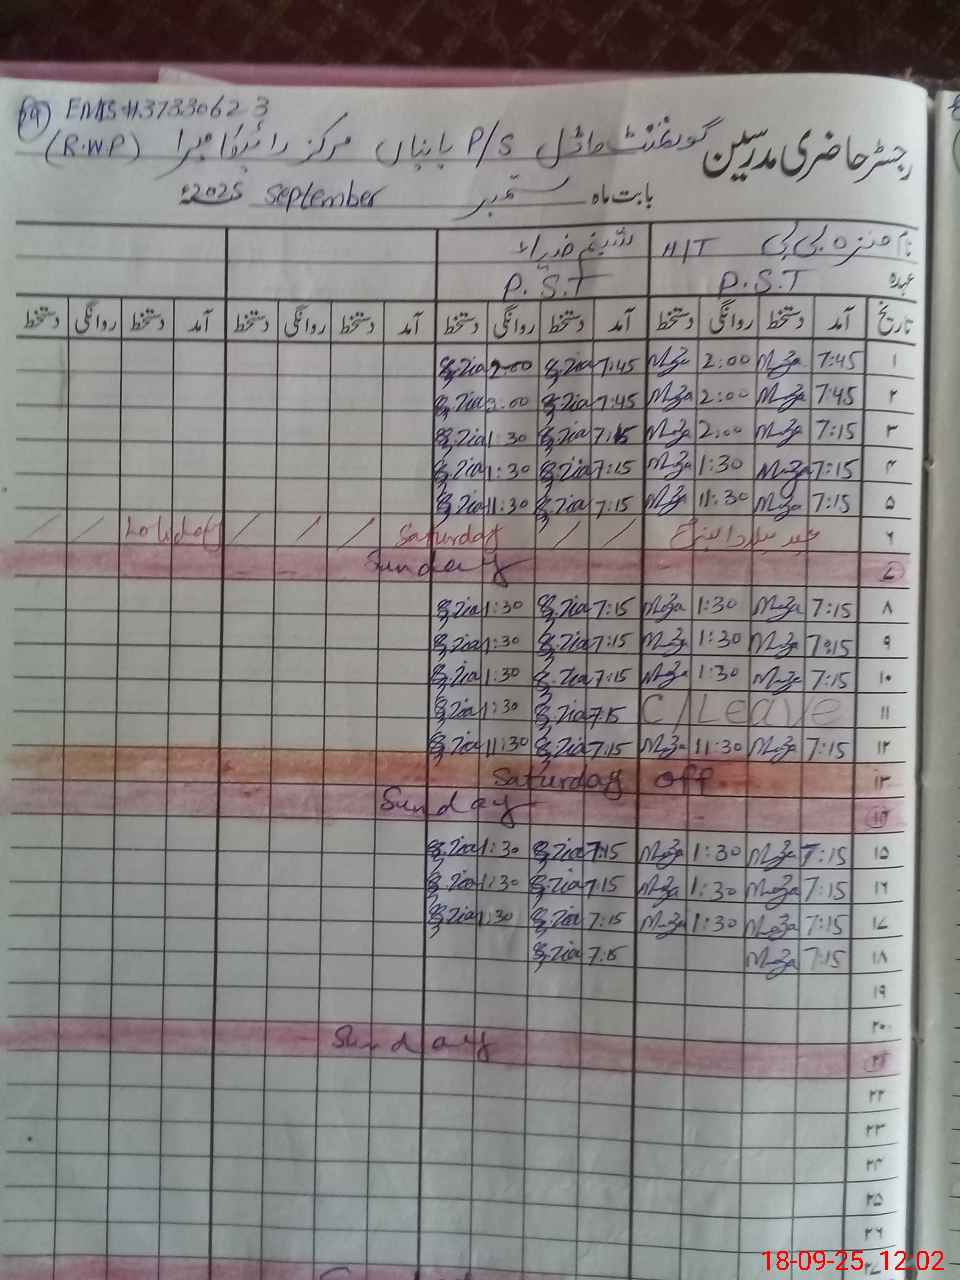 59 EMIS # 37330623
رجسٹر حاضری مدرسین گورنمنٹ ماڈل P/S مرکز (R.W.P)
بابت ماہ ستمبر September 2025ء
نام منزہ بی بی H/T
عہدہ P.S.T P.S.T
تاریخ آمد دستخط روانگی دستخط آمد دستخط روانگی دستخط آمد دستخط روانگی دستخط آمد دستخط روانگی دستخط
۱ 7:45 M-za 2:00 M-za 7:45 Zia 2:00 Zia
۲ 7:45 M-za 2:00 M-za 7:45 Zia 2:00 Zia
۳ 7:15 M-za 2:00 M-za 7:15 Zia 1:30 Zia
۴ 7:15 M-za 1:30 M-za 7:15 Zia 1:30 Zia
۵ 7:15 M-za 11:30 M-za 7:15 Zia 11:30 Zia
۶ عید میلاد النبی / / Saturday / / / Holiday / /
۷ Sunday
۸ 7:15 M-za 1:30 M-za 7:15 Zia 1:30 Zia
۹ 7:15 M-za 1:30 M-za 7:15 Zia 1:30 Zia
۱۰ 7:15 M-za 1:30 M-za 7:15 Zia 1:30 Zia
۱۱ C/Leave 7:15 Zia 1:30 Zia
۱۲ 7:15 M-za 11:30 M-za 7:15 Zia 11:30 Zia
۱۳ Saturday off
۱۴ Sunday
۱۵ 7:15 M-za 1:30 M-za 7:15 Zia 1:30 Zia
۱۶ 7:15 M-za 1:30 M-za 7:15 Zia 1:30 Zia
۱۷ 7:15 M-za 1:30 M-za 7:15 Zia 1:30 Zia
۱۸ 7:15 M-za 7:15 Zia
۱۹
۲۰
۲۱ Sunday
۲۲
۲۳
۲۴
۲۵
۲۶
۲۷
18-09-25, 12:02